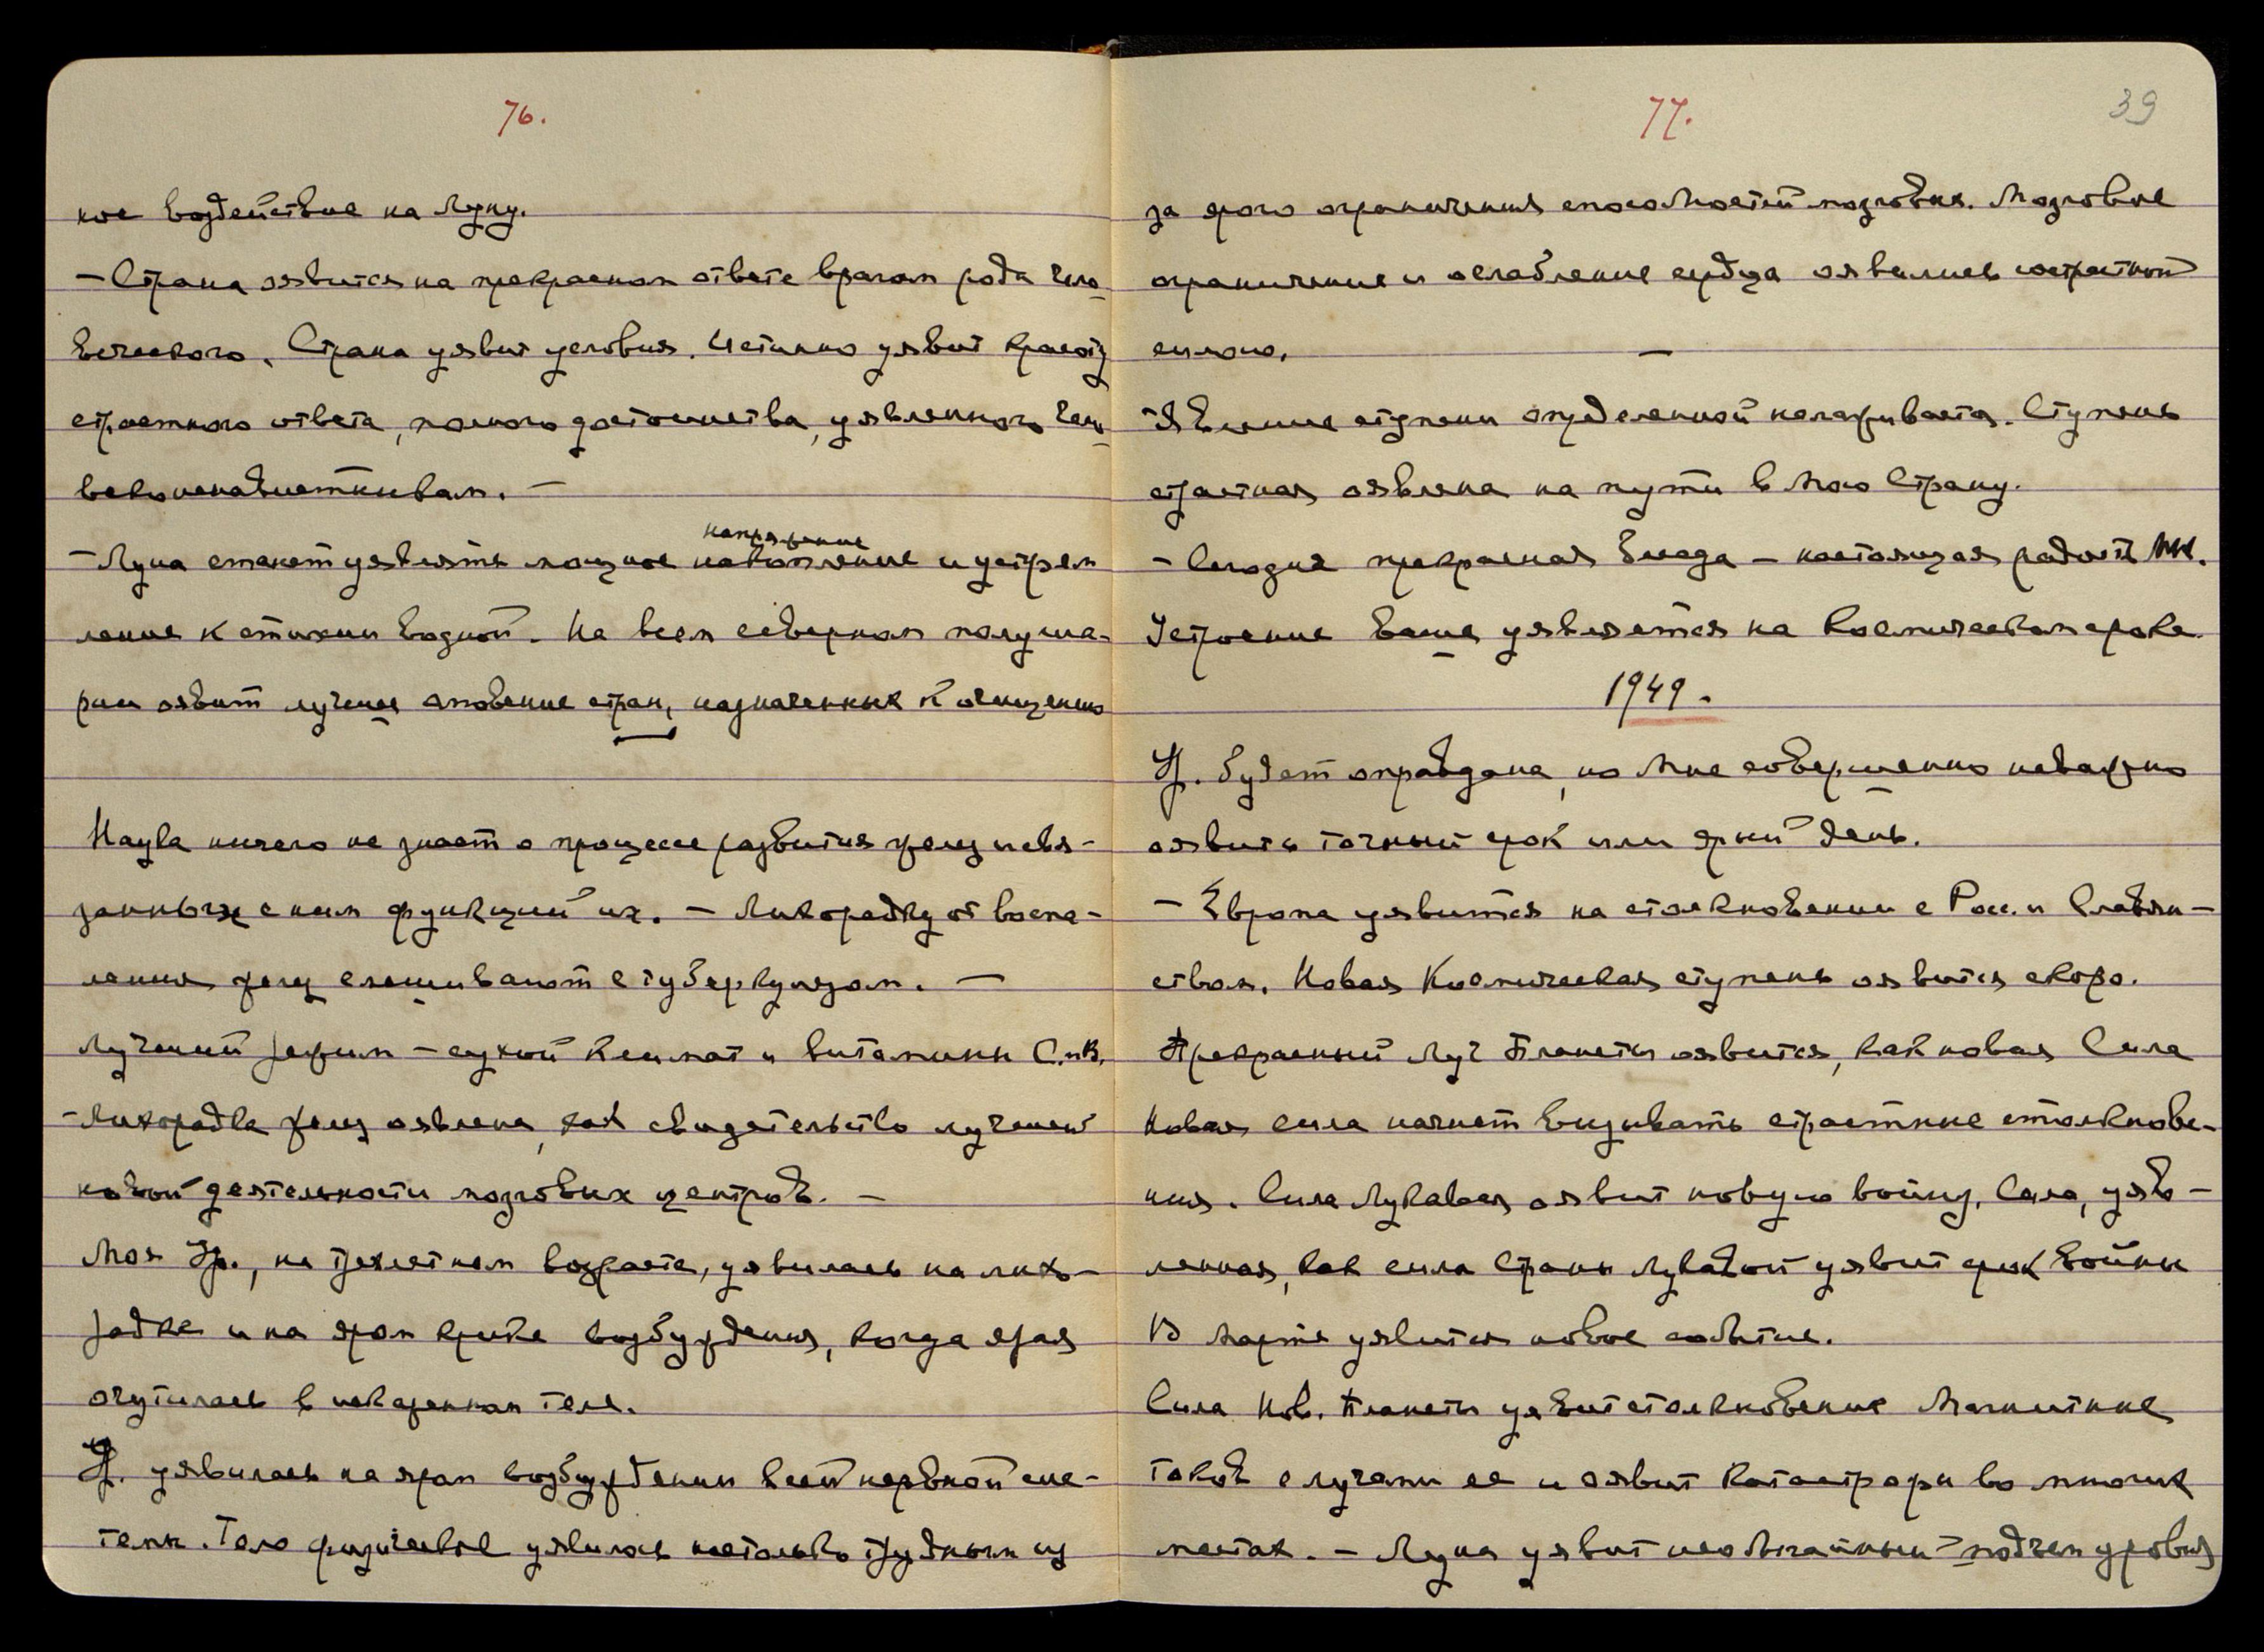 76.
ное воздействие на Луну.
— Страна оявится на прекрасном ответе врагам рода чело-
веческого. Страна уявит условия. Истинно уявит красоту
страстного ответа, полного достоинства, уявленного чело-
веконенавистникам. —
напряжение
— Луна станет уявлять мощное накопление и устрем
ление к стихии водной. На всем северном полуша-
рии оявит лучшее спасение стран, назначенных к очищению
Наука ничего не знает о процессе развития желез и свя-
занных с ним функций их. — Лихорадку от воспа-
ления желез смешивают с туберкулезом. —
Лучший режим — сухой климат и витамины С. и В.
— Лихорадка желез оявлена, как свидетельство лучшей
новой деятельности мозговых центров. —
Моя Ур., на трехлетнем возрасте, уявилась на лихо-
радке и на яром крике возбуждения, когда ярая
очутилась в искаженном теле.
Ур. уявилась на яром возбуждении всей нервной сис-
темы. Тело физическое уявилось настолько трудным из
77.
39
за ярого ограничения способностей мозговых. Мозговое
ограничение и ослабление сердца оявились страстной
силою. —
Явление ступени определенной налаживается. Ступень
страстная оявлена на пути в Мою Страну.
— Сегодня прекрасная беседа — настоящая радость Мне.
Устроение Ваше уявляется на космическом сроке.
1949.
Ур. будет оправдана, но Мне совершенно неважно
оявить точный срок или ярый день.
— Европа уявится на столкновении с Росс. и Славян-
ством. Новая Космическая ступень оявится скоро.
Прекрасный Луч Планеты оявится, как новая Сила
Новая сила начнет вызывать страстные столкнове-
ния. Сила Лукавая оявит новую войну. Сила, уяв-
ленная, как сила Страны Лукавой уявит срок войны
В марте уявится новое событие.
Сила Нов. Планеты уявит столкновение Магнитных
токов с лучами ее и оявит катастрофы во многих
местах. — Луна уявит необычайный подъем уровня